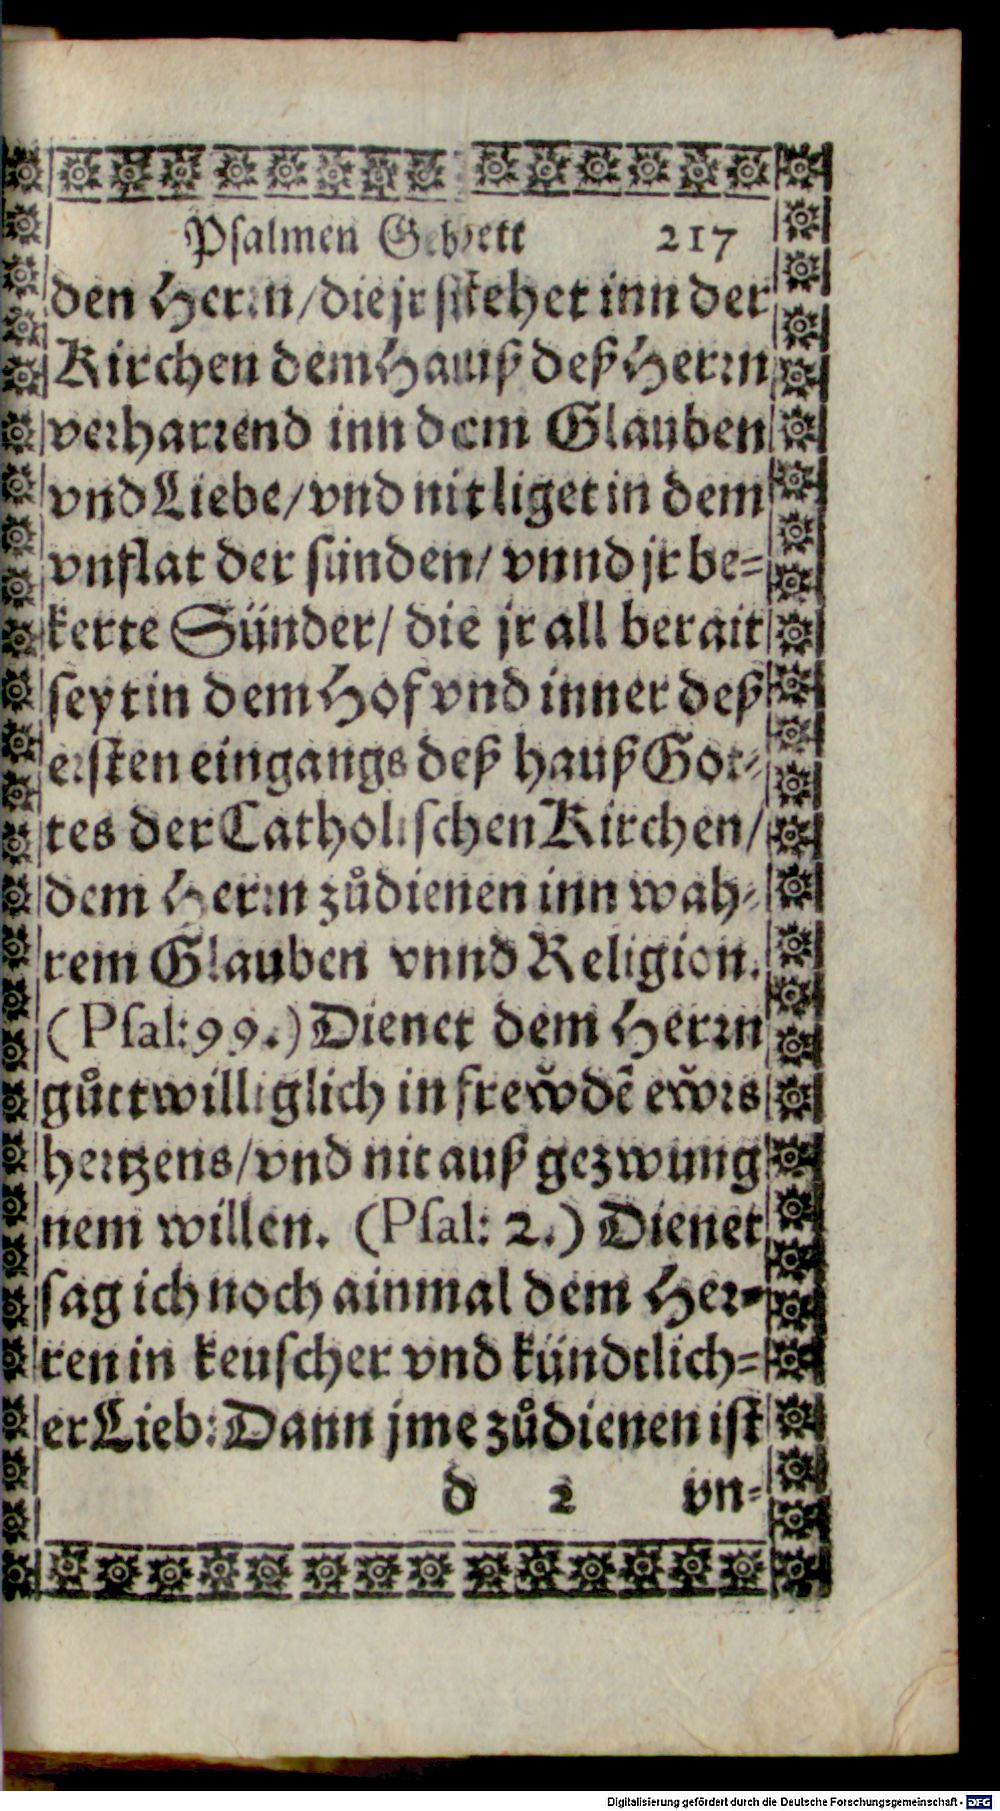 Psalmen Gebett 217
den Herrn/die jr stehet inn der
Kirchen dem Hauß deß Herrn
verharrend inn dem Glauben
vnd Liebe/vnd nit liget in dem
vnflat der sünden/ vnnd jr be-
kerte Sünder/ die jr all berait
seyt in dem Hof vnd inner deß
ersten eingangs deß hauß Got-
tes der Catholischen Kirchen/
dem Herrn zůdienen inn wah-
rem Glauben vnnd Religion.
(Psal: 99.) Dienet dem Herrn
gůttwilliglich in frew̆dē ew̆rs
hertzens/vnd nit auß gezwung
nem willen. (Psal: 2.) Dienet
sag ich noch ainmal dem Her-
ren in keuscher vnd kündtlich-
er Lieb: Dann jme zůdienen ist
d 2 vn-
Digitalisierung gefördert durch die Deutsche Forschungsgemeinschaft - DFG